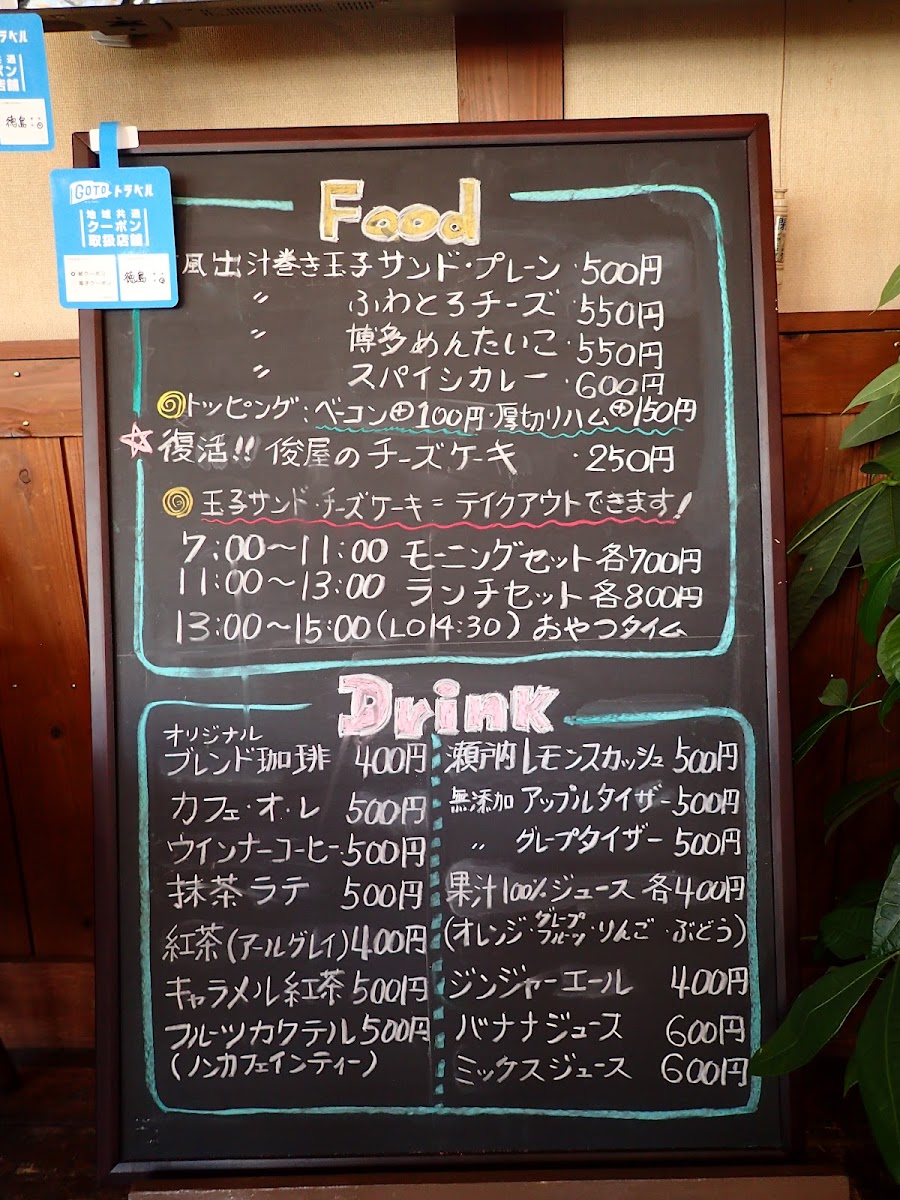 トラベル
徳島
GOTO トラベル
地域共通
クーポン
取扱店舗
紙クーポン
電子クーポン
徳島
Food
風出汁巻き玉子サンド・プレーン・500円
〃 ふわとろチーズ・550円
〃 博多めんたいこ・550円
〃 スパイシカレー・600円
トッピング:ベーコン⊕100円・厚切りハム⊕150円
☆復活!! 俊屋のチーズケーキ ・250円
玉子サンド・チーズケーキ=テイクアウトできます!
7:00〜11:00 モーニングセット各700円
11:00〜13:00 ランチセット各800円
13:00〜15:00(LO14:30)おやつタイム
Drink
オリジナル
ブレンド珈琲 400円
カフェ・オ・レ 500円
ウインナーコーヒー・500円
抹茶ラテ 500円
紅茶(アールグレイ)400円
キャラメル紅茶 500円
フルーツカクテル 500円
(ノンカフェインティー)
瀬戸内レモンスカッシュ 500円
無添加 アップルタイザー 500円
〃 グレープタイザー 500円
果汁100%ジュース 各400円
(オレンジ・グレープフルーツ・りんご・ぶどう)
ジンジャーエール 400円
バナナジュース 600円
ミックスジュース 600円